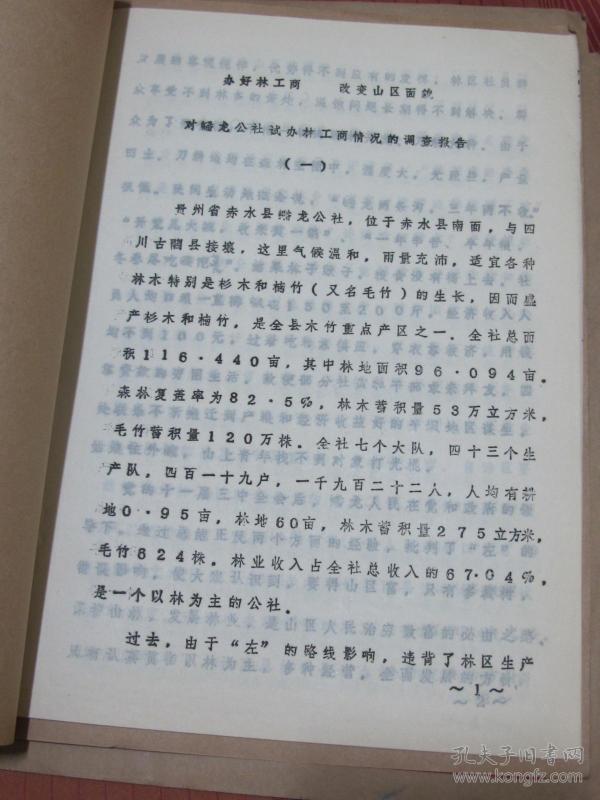 办好林工商 改变山区面貌
对蟠龙公社试办林工商情况的调查报告
(一)
贵州省赤水县蟠龙公社，位于赤水县南面，与四
川古蔺县接壤，这里气候温和，雨量充沛，适宜各种
林木特别是杉木和楠竹（又名毛竹）的生长，因而盛
产杉木和楠竹，是全县木竹重点产区之一。全社总面
积116·440亩，其中林地面积96·094亩。
森林复盖率为82·5%，林木蓄积量53万立方米，
毛竹蓄积量120万株。全社七个大队，四十三个生
产队，四百一十九户，一千九百二十二人，人均有耕
地0·95亩，林地60亩，林木蓄积量275立方米，
毛竹824株。林业收入占全社总收入的67·04%，
是一个以林为主的公社。
过去，由于“左”的路线影响，违背了林区生产
～1～
～2～
孔夫子旧书网
www.kongfz.com